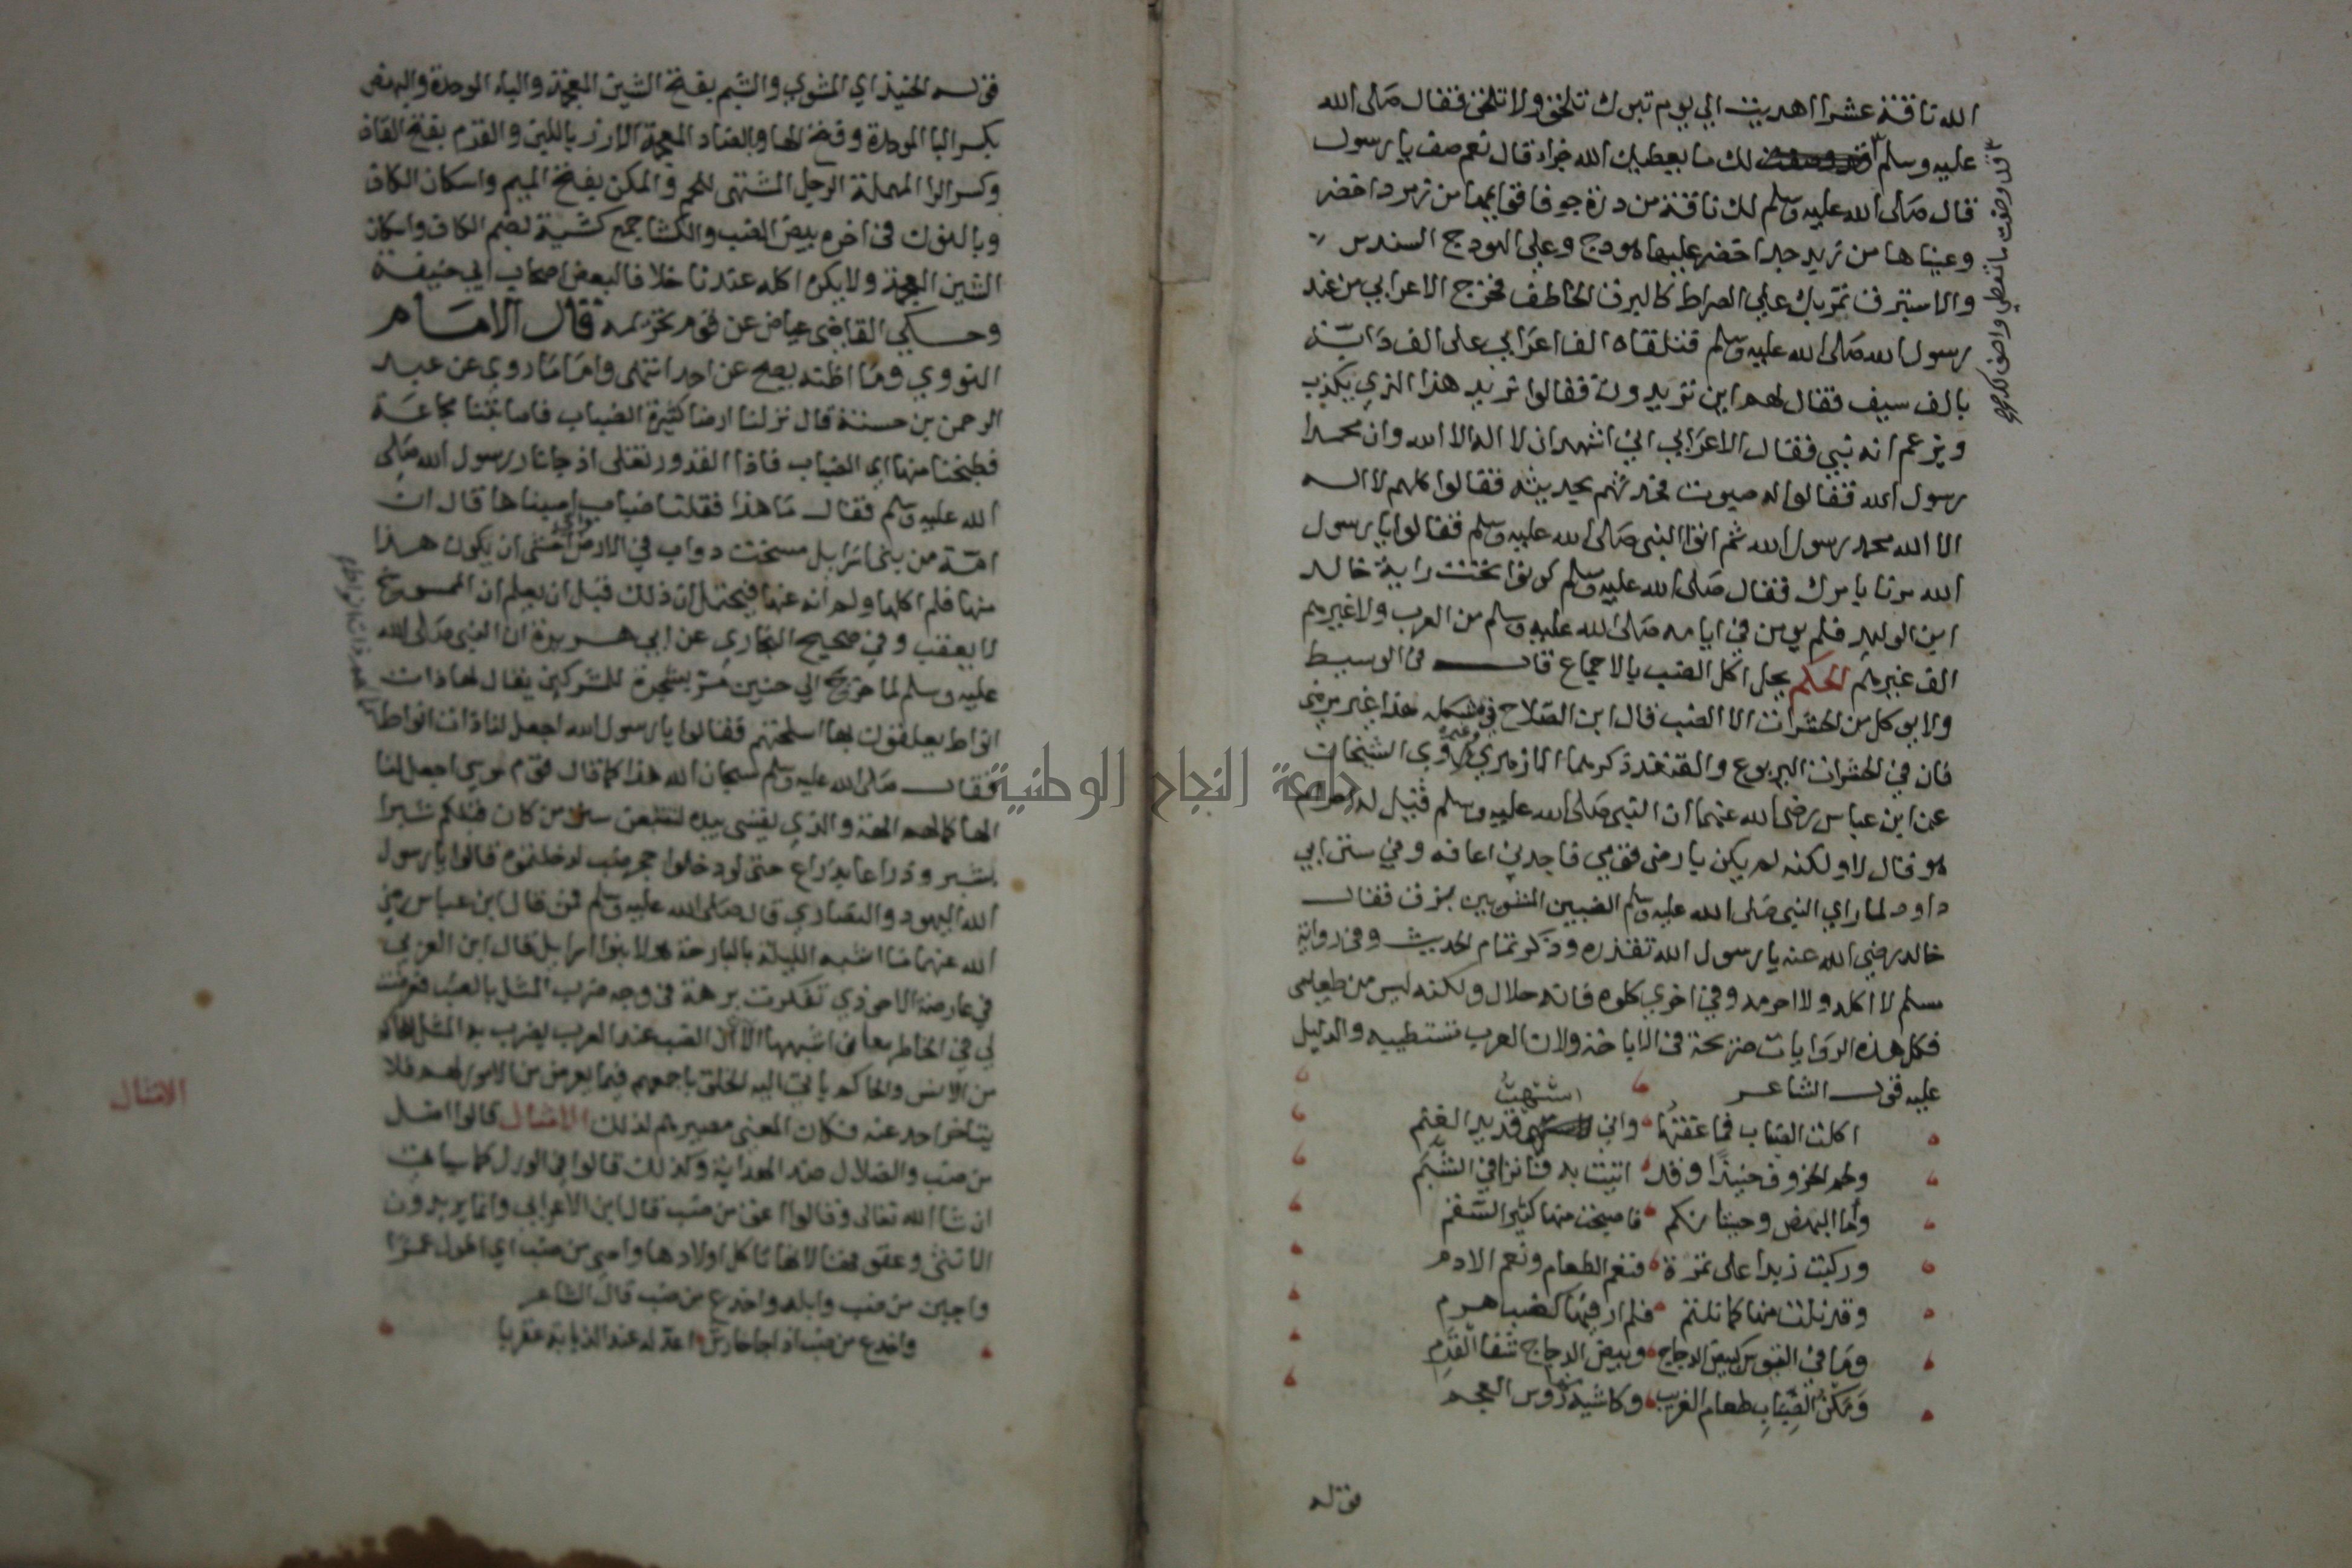 الله ناقة عشرا اهديت الي يوم تبوك تلحق ولا تلحق فقال صلى الله
عليه وسلم لك ما يعطيك الله جزاء قال نعم صف يا رسول
قد وصفت ما تعطي واصف لك
قال صلى الله عليه وسلم لك ناقة من درة جوفا قوايمها من زمرد اخضر
وعيناها من زبرجد اخضر عليها هودج وعلى الهودج السندس
والاستبرق تمر بك على الصراط كالبرق الخاطف فخرج الاعرابي من عند
رسول الله صلى الله عليه وسلم فتلقاه الف اعرابي على الف دابة
بالف سيف فقال لهم اين تريدون فقالوا نريد هذا الذي يكذب
ويزعم انه نبي فقال الاعرابي اني اشهد ان لا اله الا الله وان محمدا
رسول الله فقالوا له صبوت فحدثهم بحديثه فقالوا كلهم لا اله
الا الله محمد رسول الله ثم اتوا النبي صلى الله عليه وسلم فقالوا يا رسول
الله مرنا بامرك فقال صلى الله عليه وسلم كونوا تحت راية خالد
ابن الوليد فلم يومن في ايامه صلى الله عليه وسلم من العرب ولا غيرهم
الف غيرهم الحكم يحل اكل الضب بالاجماع قال في الوسيط
ولا يوكل من الحشرات الا الضب قال ابن الصلاح في مشكله هذا غير مرضي
فان في الحشرات اليربوع والقنفذ ذكرهما الازهري وغيره روي الشيخان
عن ابن عباس رضي الله عنهما ان النبي صلى الله عليه وسلم قيل له احرام
هو قال لا ولكنه لم يكن بارض قومي فاجدني اعافه وفي سنن ابي
داود لما راي النبي صلى الله عليه وسلم الضبين المشويين بزق فقال
خالد رضي الله عنه يا رسول الله تقذره وذكر تمام الحديث وفي رواية
مسلم لا اكله ولا احرمه وفي اخري كلوه فانه حلال ولكنه ليس من طعامي
فكل هذه الروايات صريحة في الاباحة ولان العرب تستطيبه والدليل
عليه قول الشاعر
اكلت الضباب فما عفتها واني اشتهيت قديد الغنم
ولحم الخروف حنيذا وقد اتيت به فاترا في الشبم
وأما البهض وحيتانكم فاصبحت منها كثير السقم
وركبت زبدا على تمرة فنعم الطعام ونعم الادم
وقد نلت منها كما نلتم فلم ار فيها كضب هرم
وما في البيوض كبيض الدجاج وبيض الدجاج شفا القرم
ومكن الضباب طعام العريب وكاشيه منها روس العجم
قوله
قوله الحنيذ اي المشوي والشبم بفتح الشين المعجمة والباء الموحدة والبهض
بكسر البا الموحدة وفتح الها وبالضاد المعجمة الارز باللبن والقرم بفتح القاف
وكسر الرا المهملة الرجل المشتهي للحم والمكن بفتح الميم واسكان الكاف
وبالنون في اخره بيض الضب والكشا جمع كشية بضم الكاف واسكان
الشين المعجمة ولا يكره اكله عندنا خلافا لبعض اصحاب ابي حنيفة
وحكي القاضي عياض عن قوم تحريمه قال الامام
النووي وما اظنه يصح عن احد انتهى واما ما روي عن عبد
الرحمن بن حسنة قال نزلنا ارضا كثيرة الضباب فاصابتنا مجاعة
فطبخنا منها اي الضباب فاذا القدور تغلي اذ جانا رسول الله صلى
الله عليه وسلم فقال ما هذا فقلنا ضباب اصبناها قال ان
امة من بني اسرايل مسخت دواب في الارض واني اخشى ان يكون هذا
منها فلم اكلها ولم انه عنها فيحتمل ان ذلك قبل ان يعلم ان الممسوخ
لا يعقب وفي صحيح البخاري عن ابي هريرة ان النبي صلى الله
عليه وسلم لما خرج الي حنين مر بشجرة للمشركين يقال لها ذات
انواط يعلقون بها اسلحتهم فقالوا يا رسول الله اجعل لنا ذات انواط
فقال صلى الله عليه وسلم سبحان الله هذا كما قال قوم موسي اجعل لنا
الها كما لهم الهة والذي نفسي بيده لتتبعن سنن من كان قبلكم شبرا
بشبر وذراعا بذراع حتى لو دخلوا جحر ضب لدخلتموه قالوا يا رسول
الله اليهود والنصاري قال صلى الله عليه وسلم فمن قال ابن عباس رضي
الله عنهما ما اشبه الليلة بالبارحة هولا بنوا اسرايل قال ابن العربي
في عارضة الاحوذي تفكرت برهة في وجه ضرب المثل بالضب فعرضت
لي في الخاطر معان اشبهها الان ان الضب عند العرب يضرب به المثل للحاكم
من الانس والحاكم ياتي اليه الخلق باجمعهم فيما يعرض من الامور لهم فلا
يتاخر احد عنه فكان المعنى مصيرهم لذلك الامثال قالوا اضل
الامثال
من ضب والضلال ضد الهداية وكذلك قالوا في الورل كما سياتي
ان شا الله تعالى وقالوا اعق من ضب قال ابن الاعرابي وانما يريدون
الانثى وعقوقها لانها تاكل اولادها واحيي من ضب اي اطول عمرا
واجبن من ضب وابله واخدع من ضب قال الشاعر
واخدع من ضب اذا جا حارش اعد له عند الذبابة عقربا
جامعة النجاح الوطنية